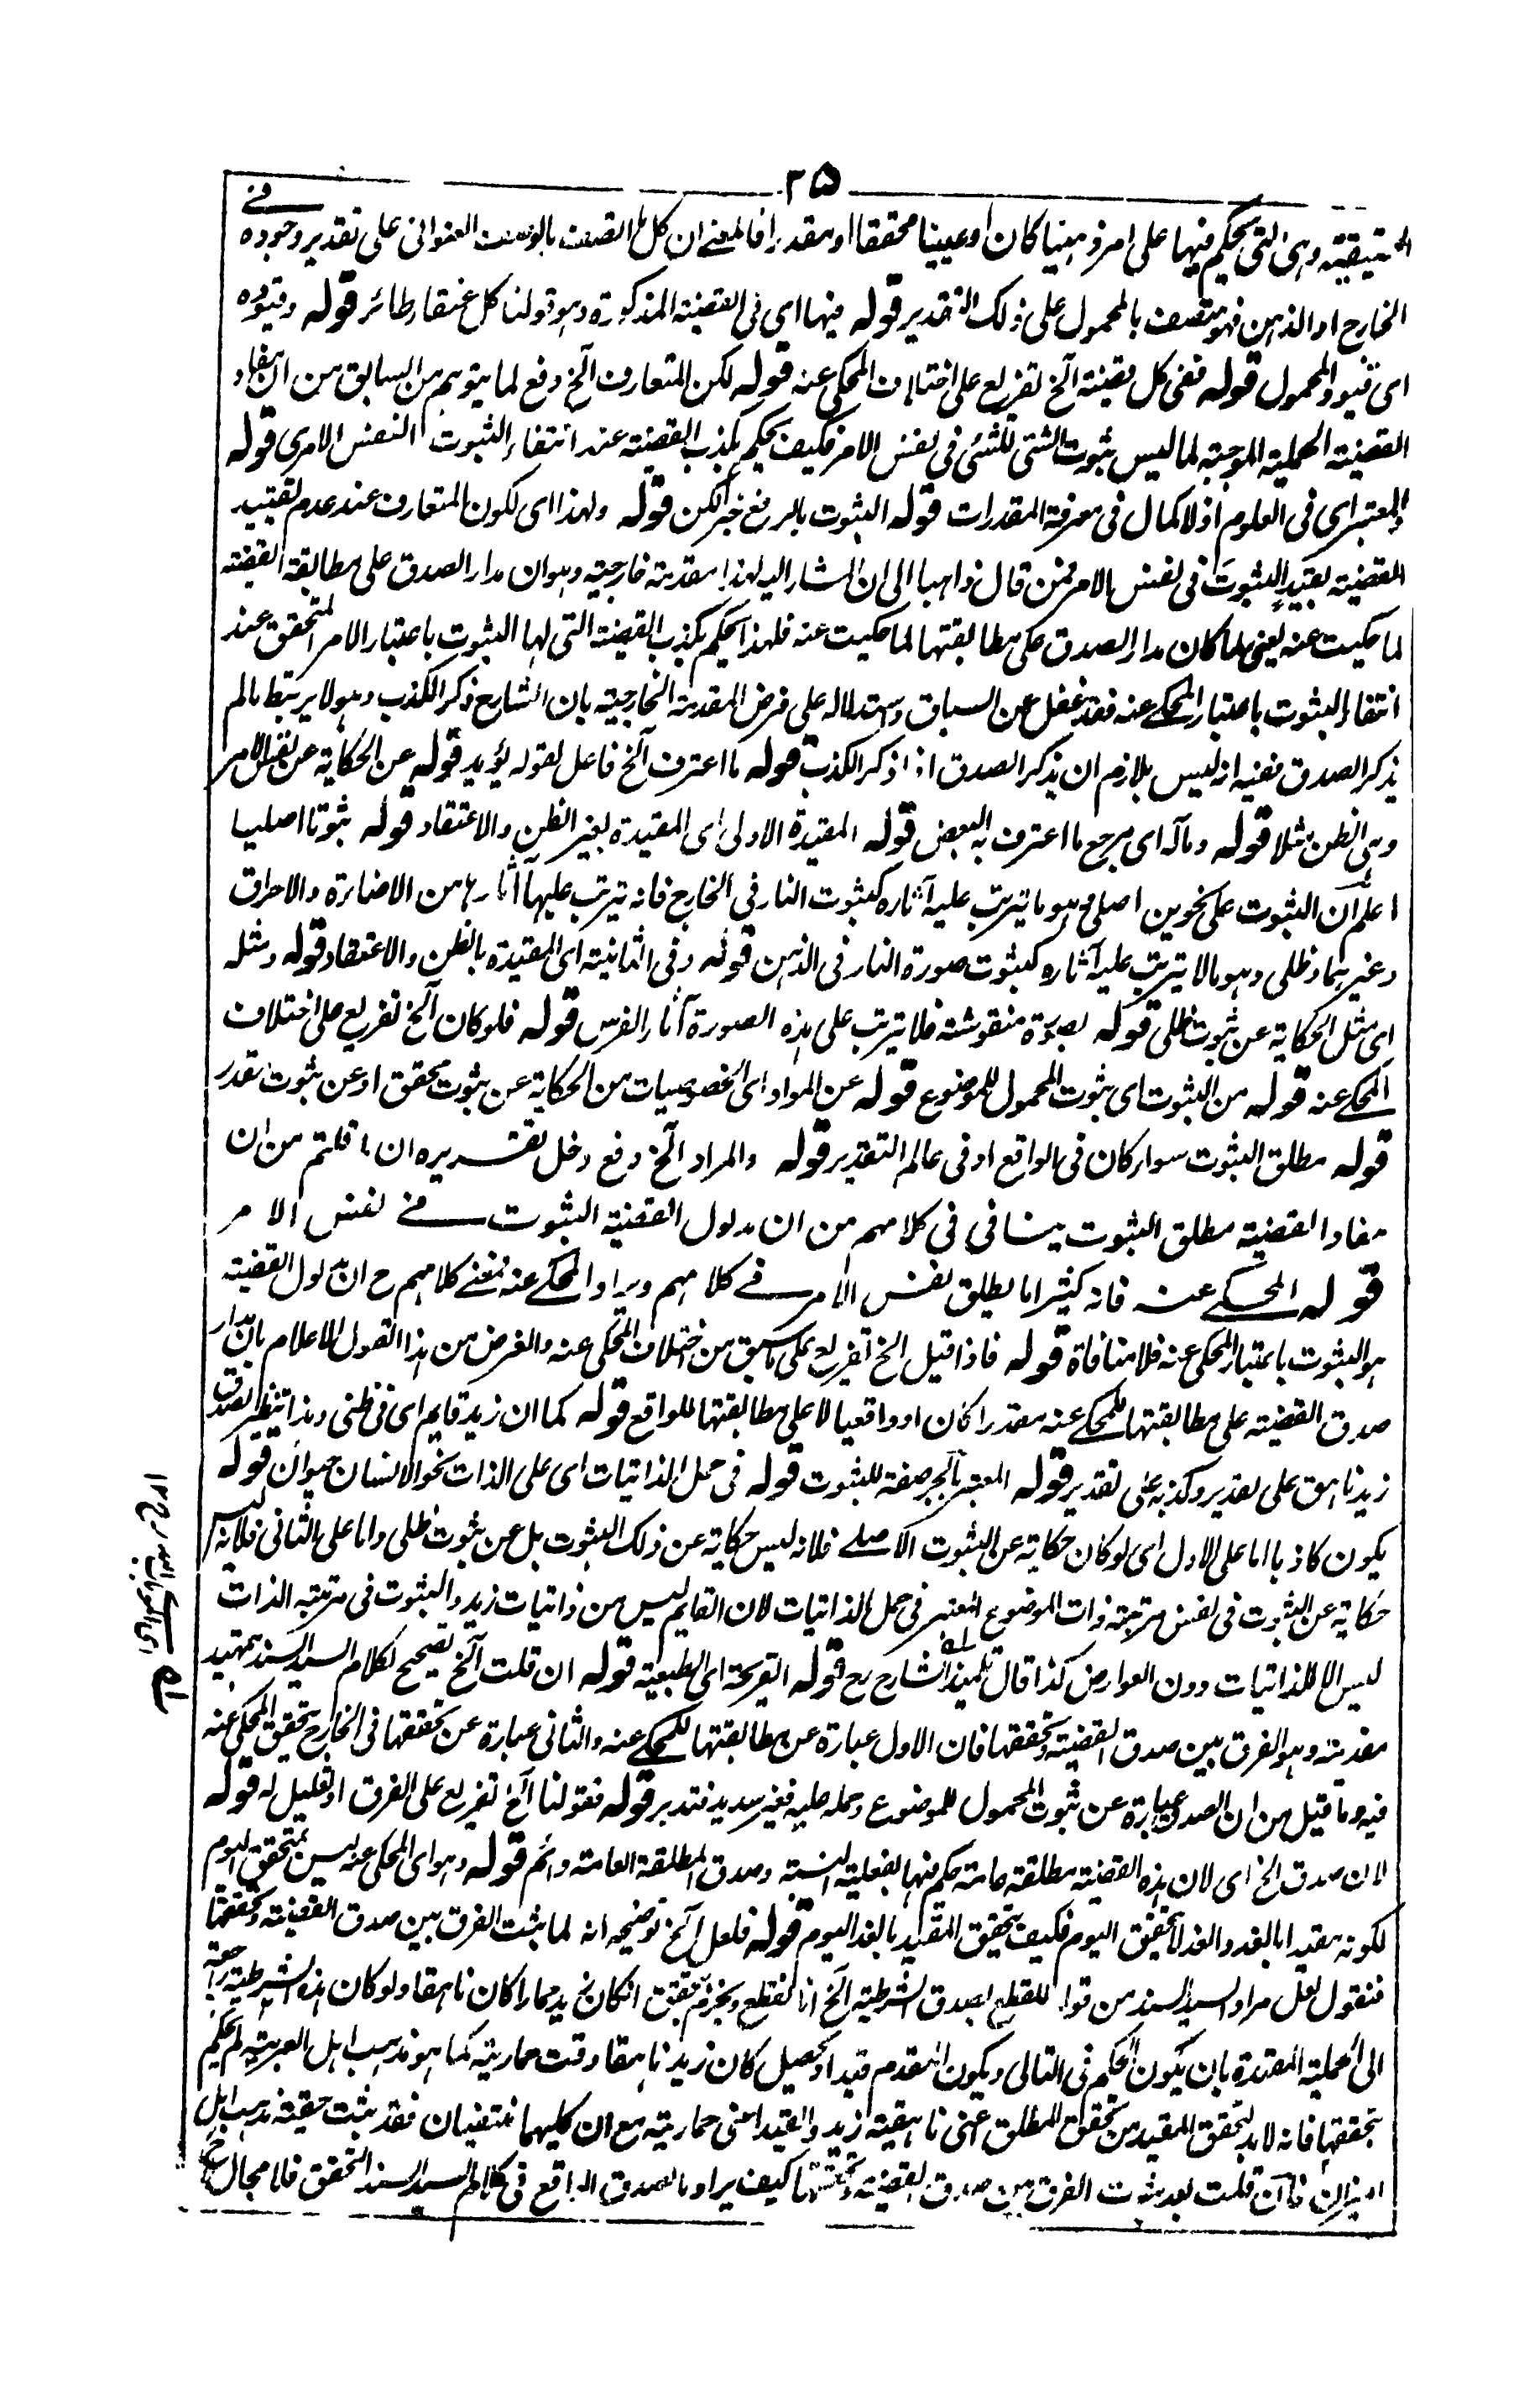 ٢٥
الحقيقية وهى التى يحكم فيها على امر ذهنيا كان او عينيا محققا او مقدرا فالمعنے ان كل ما اتصف بالوصف العنوانى على تقدير وجوده فے
الخارج او الذهن فهو متصف بالمحمول على ذلك التقدير قوله فيها اى فى القضية المذكورة وهو قولنا كل عنقاء طائر قوله وقيوده
اى قيود المحمول قوله ففى كل قضية آلخ تفريع على اختلاف المحكى عنه قوله لكن المتعارف آلخ دفع لما يتوهم من السابق من ان مفاد
القضية الحملية الموجبة لما ليس ثبوت الشئ للشئ فى نفس الامر فكيف يحكم بكذب القضية عند انتفاء الثبوت النفس الامرى قوله
والمعتبر اى فى العلوم اذ لا كمال فى معرفة المقدرات قوله الثبوت بالرفع خبر لكن قوله ولهذا اى لكون المتعارف عند عدم تقييد
القضية بقيد الثبوت فى نفس الامر فمن قال ذاهبا الى ان المشار اليه لهذا مقدمة خارجية وهو ان مدار الصدق على مطابقة القضية
لما حكيت عنه يعنى لما كان مدار الصدق على مطابقتها لما حكيت عنه فلهذا يحكم بكذب القضية التى لها الثبوت باعتبار الامر المتحقق عند
انتفاء الثبوت باعتبار المحكے عنه فقد غفل عن السباق واستدلاله على فرض المقدمة الخارجية بان الشارح ذكر الكذب وهو لا يرتبط بالم
يذكر الصدق ففيه انه ليس بلازم ان يذكر الصدق اذا ذكر الكذب قوله ما اعترف آلخ فاعل لقوله يؤيد قوله عن الحكاية عن نفس الامر
وهى الظن مثلا قوله ومآله اى مرجع ما اعترف به البعض قوله المقيدة الاولى اى المقيدة بغير الظن والاعتقاد قوله ثبوتا اصليا
اعلم ان الثبوت على نحوين اصلى وهو ما يترتب عليه آثاره كثبوت النار فى الخارج فانه يترتب عليها آثارها من الاضاءة والاحراق
وغيرهما وظلى وهو ما لا يترتب عليه آثاره كثبوت صورة النار فى الذهن قوله وفى الثانية اى المقيدة بالظن والاعتقاد قوله ومثله
اى مثل الحكاية عن ثبوت ظلى قوله بصورة منقوشة فلا يترتب على هذه الصورة آثار الفرس قوله فلو كان آلخ تفريع على اختلاف
المحكے عنه قوله من الثبوت اى ثبوت المحمول للموضوع قوله عن المواد اى الخصوصيات من الحكاية عن ثبوت محقق او عن ثبوت مقدر
قوله مطلق الثبوت سواء كان فى الواقع او فى عالم التقدير قوله والمراد آلخ دفع دخل تقريره ان ما قلتم من ان
مفاد القضية مطلق الثبوت ينافى فى كلامهم من ان مدلول القضية الثبوت فے نفس الامر
قوله المحكے عنه فانه كثيرا ما يطلق نفس الامر فے كلامهم ويراد المحكے عنه فمعنے كلامهم ح ان مدلول القضية
هو الثبوت باعتبار المحكى عنه فلا منافاة قوله فاذا قيل الخ تفريع على ما سبق من اختلاف المحكى عنه والغرض من هذا القول الاعلام بان مدار
صدق القضية على مطابقتها للمحكے عنه مقدرا كان او واقعيا لا على مطابقتها للواقع قوله كما ان زيد قايم اى فى ظنى وهذا تنظير لصدق
زيد ناهق على تقدير وكذبه على تقدير قوله المعتبر بالجر صفة للثبوت قوله فى حمل الذاتيات اى على الذات نحو الانسان حيوان قوله
يكون كاذبا اما على الاول اى لو كان حكاية عن الثبوت الاصلے فلانه ليس حكاية عن ذلك الثبوت بل عن ثبوت ظلى واما على الثانى فلانه ليس
حكاية عن الثبوت فى نفس مرتبة ذات الموضوع المعتبر فى حمل الذاتيات لان القايم ليس من ذاتيات زيد والثبوت فى مرتبة الذات
ليس الا للذاتيات دون العوارض كذا قال تلميذ الشارح رح قوله القريحة اى الطبيعة قوله ان قلت آلخ تصحيح لكلام السيد السند بتمهيد
مقدمة وهو الفرق بين صدق القضية وتحققها فان الاول عبارة عن مطابقتها للمحكے عنه والثانى عبارة عن تحققها فى الخارج بتحقق المحكى عنه
فيه وما قيل من ان الصدق عبارة عن ثبوت المحمول للموضوع وحمله عليه فغير سديد فتدبر قوله فقولنا آلخ تفريع على الفرق او تعليل له قوله
لان صدق الخ اى لان هذه القضية مطلقة عامة حكم فيها بفعلية النسبة وصدق المطلقة العامة دائم قوله وهو اى المحكى عنه ليس بمتحقق اليوم
لكونه مقيدا بالغد والغد لا يتحقق اليوم فكيف يتحقق المقيد بالغد اليوم قوله فلعل آلخ توضيحه انه لما ثبت الفرق بين صدق القضية وتحققها
فنقول لعل مراد السيد السند من قوله للقطع بصدق الشرطية آلخ انا نقطع ونجزم بتحقق ان كان زيد حمارا كان ناهقا ولو كان هذه الشرطية راجعة
الى الحملية المقيدة بان يكون الحكم فى التالى ويكون المقدم قيدا ويحصيل كان زيد ناهقا وقت حماريته كما هو مذهب اهل العربية لم يحكم
بتحققها فانه لا بد لتحقق المقيد من تحقق المطلق اعنى ناهقية زيد والقيد اعنى حماريته مع ان كليهما منتفيان فقد ثبت حقية مذهب اهل
الميزان فان قلت بعد ثبوت الفرق بين صدق القضية وتحققها كيف يراد بالصدق الواقع فى كلام السيد السند التحقق فلا مجال